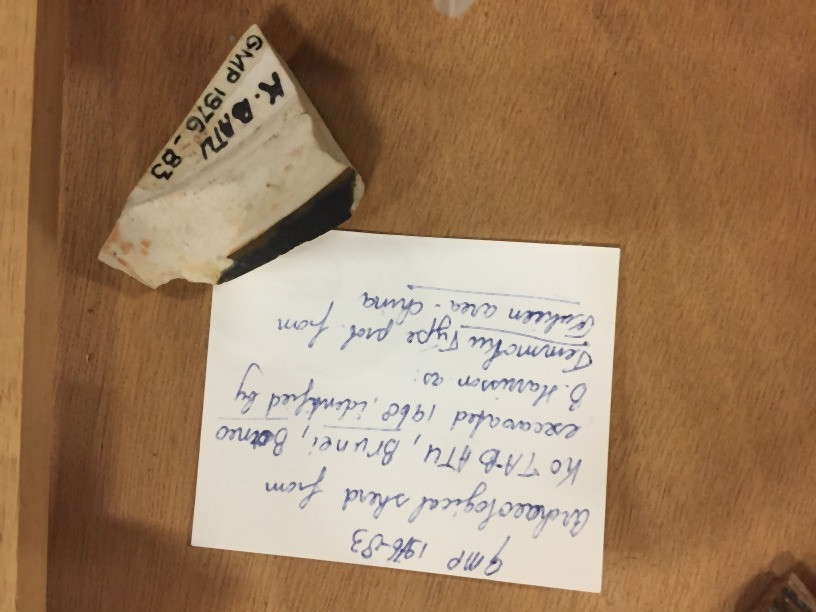 K. BATU
GMP 1976-83
GMP 1976-83
Archaeological sherd from
KOTA-BATU, Brunei, Borneo
excavated 1968, identified by
B. Harrisson as:
Temmoku Type prob. from
Fukien area - China